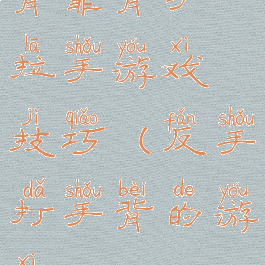 lā shǒu yóu xì
拉手游戏
jì qiǎo fǎn shǒu
技巧（反手
dǎ shǒu bèi de yóu
打手背的游
xì